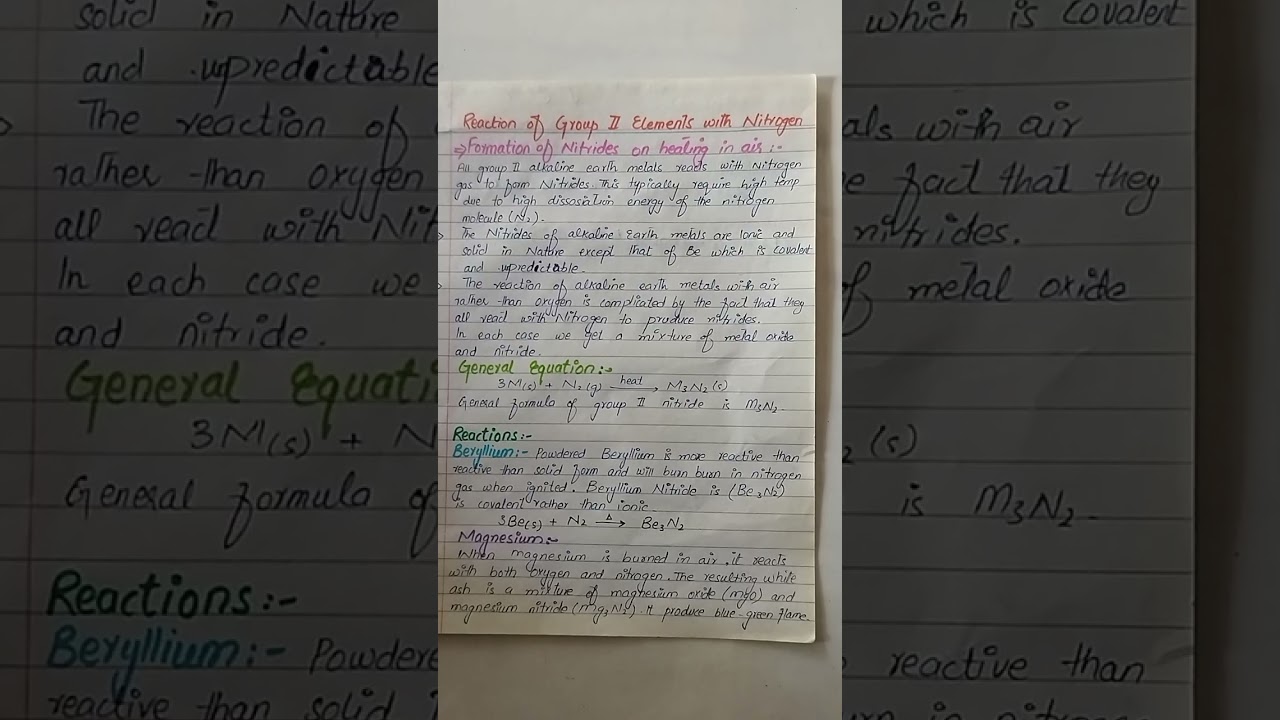 Reaction of Group II Elements with Nitrogen
⇒Formation of Nitrides on heating in air :-
All group II alkaline earth metals reacts with Nitrogen
gas to form Nitrides. This typically require high temp
due to high dissosation energy of the nitrogen
molecule (N2).
The Nitrides of alkaline Earth metals are Ionic and
solid in Nature except that of Be which is covalent
and upredictable.
The reaction of alkaline earth metals with air
rather than oxygen is complicated by the fact that they
all react with Nitrogen to produce nitrides.
In each case we get a mixture of metal oxide
and nitride.
General Equation:-
3M(s) + N2(g) heat→ M3N2(s)
General formula of group II nitride is M3N2.
Reactions:-
Beryllium:- Powdered Beryllium is more reactive than
reactive than solid form and will burn burn in nitrogen
gas when ignited. Beryllium Nitride is (Be3N2)
is covalent rather than ionic
3Be(s) + N2 Δ→ Be3N2
Magnesium:-
When magnesium is burned in air, it reacts
with both oxygen and nitrogen. The resulting white
ash is a mixture of magnesium oxide (mgo) and
magnesium nitride (mg3N2). It produce blue-green flame.